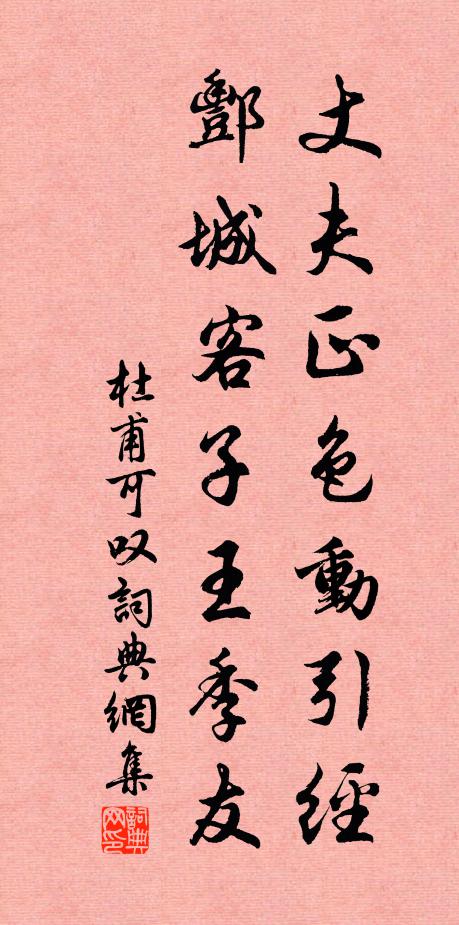 丈夫正色動引經
酆城客子王季友
杜甫可叹詞典網集
詞典网印